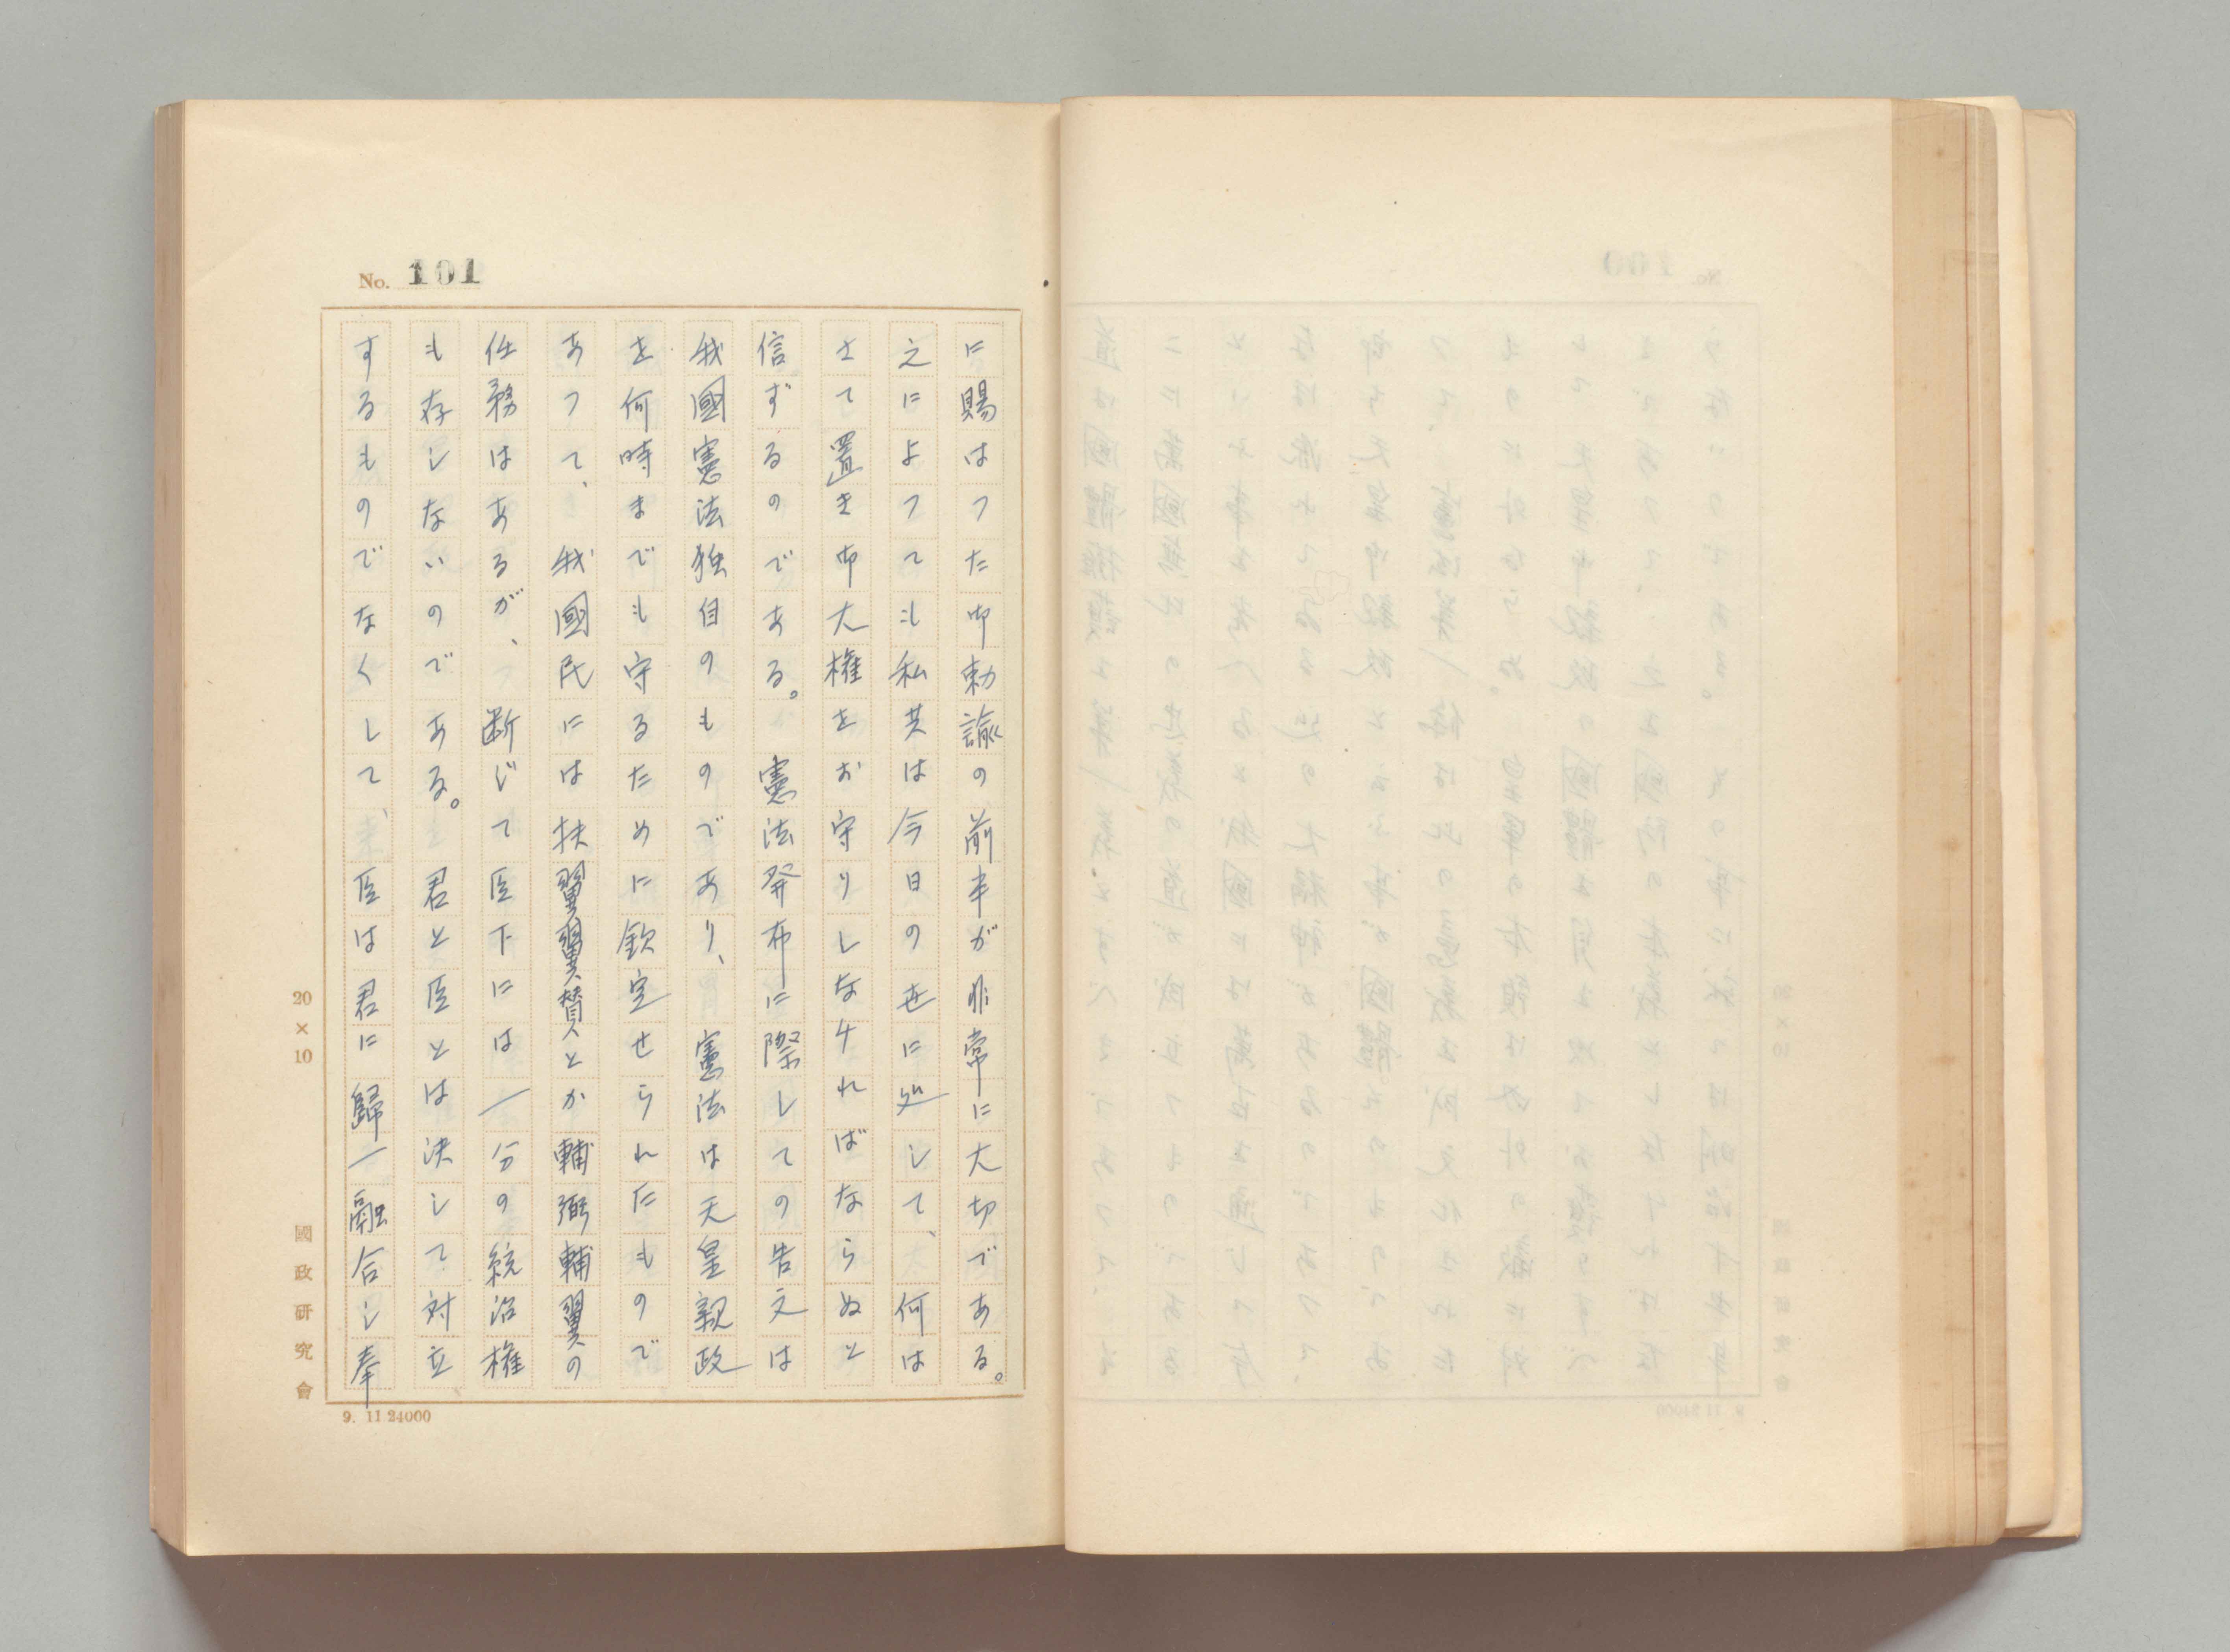 No. 101
に賜はつた御勅諭の前半が非常に大切である。
之によつても私共は今日の世に処して、何は
さて置き御大権をお守りしなければならぬと
信ずるのである。憲法発布に際しての告文は
我國憲法独自のものであり、憲法は天皇親政
を何時までも守るために欽定せられたもので
あつて、我國民には扶翼翼賛とか輔弼輔翼の
任務はあるが、断じて臣下には一分の統治権
も存しないのである。君と臣とは決して対立
するものでなくして、臣は君に歸一融合し奉
20×10
國政研究會
9. 11 24000